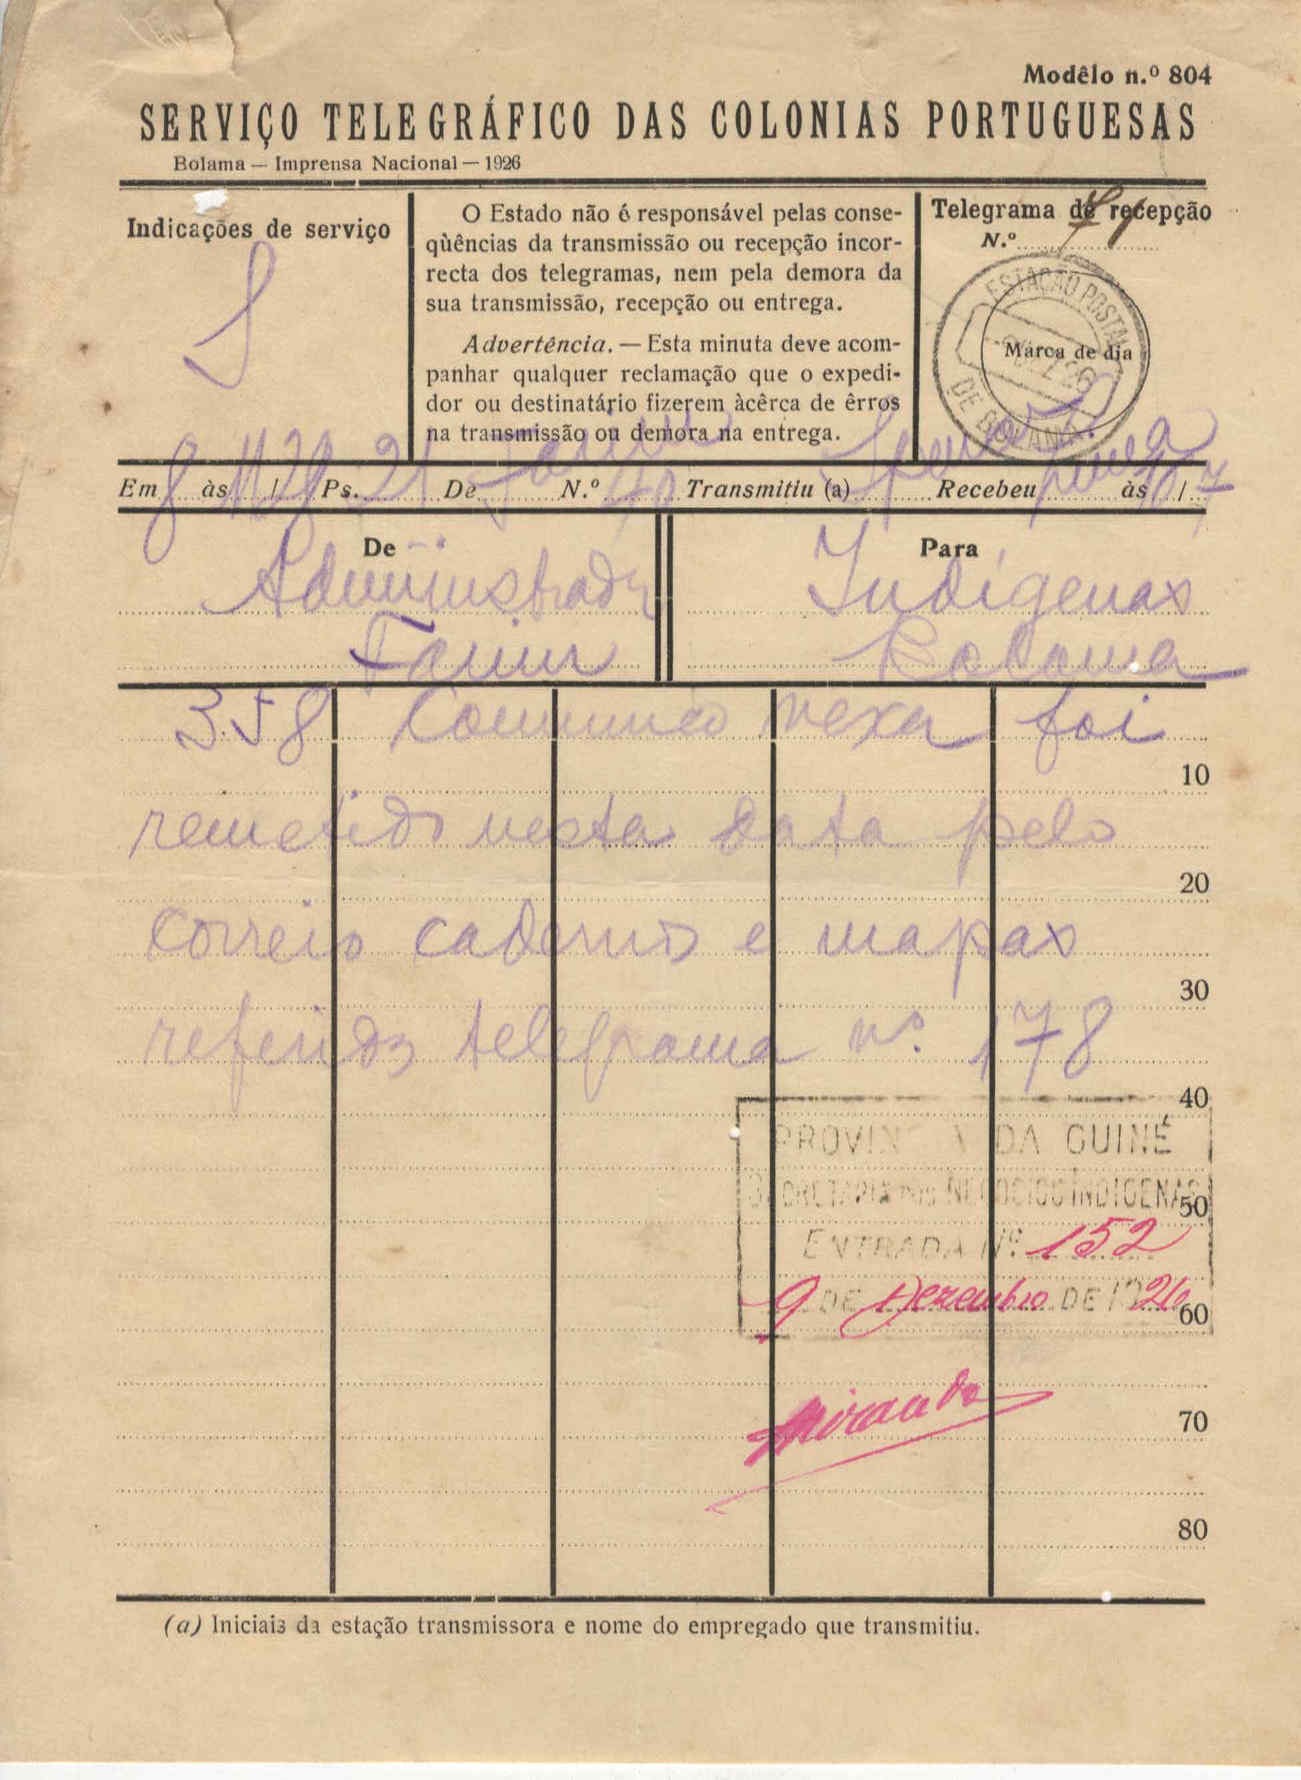 Modêlo n.º 804
SERVIÇO TELEGRÁFICO DAS COLONIAS PORTUGUESAS
Bolama — Imprensa Nacional — 1926
Indicações de serviço
S
O Estado não é responsável pelas conse-
qüências da transmissão ou recepção incor-
recta dos telegramas, nem pela demora da
sua transmissão, recepção ou entrega.
Advertência. — Esta minuta deve acom-
panhar qualquer reclamação que o expedi-
dor ou destinatário fizerem àcêrca de êrros
na transmissão ou demora na entrega.
Telegrama de recepção
N.º
ESTAÇÃO POSTAL
DE BOLAMA
Marca de dia
Em 8 às / Ps. 21 De Farim N.º 40 Transmitiu (a) Recebeu às /
De
Administrador
Farim
Para
Indígenas
Bolama
358 Comunico vexa foi
remetido nesta data pelo
correio cadernos e mapas
referidos telegrama nº. 178
10
20
30
40
50
60
70
80
PROVINCIA DA GUINÉ
SECRETARIA DOS NEGOCIOS INDIGENAS
ENTRADA Nº. 152
9 DE Dezembro DE 1926
Miranda
(a) Iniciais da estação transmissora e nome do empregado que transmitiu.